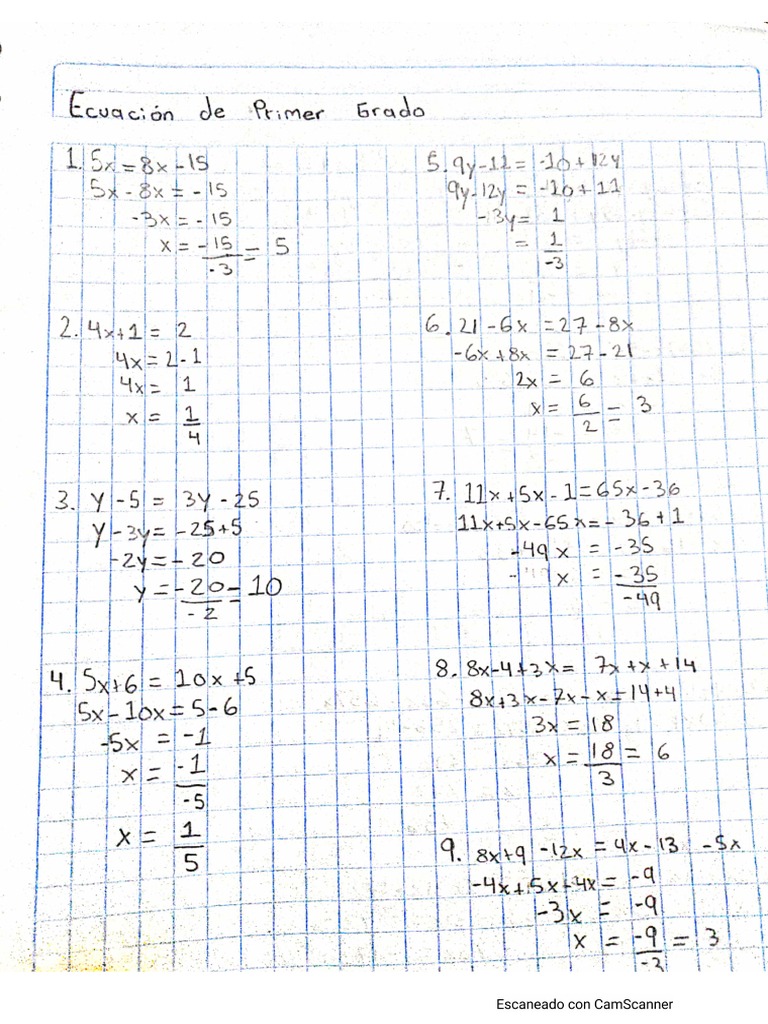 Ecuación de Primer Grado
1. 5x = 8x - 15
5x - 8x = - 15
-3x = - 15
x = - 15 / -3 = 5
2. 4x+1 = 2
4x = 2 - 1
4x = 1
x = 1 / 4
3. y - 5 = 3y - 25
y - 3y = - 25 + 5
-2y = - 20
y = - 20 / - 2 = 10
4. 5x+6 = 10x +5
5x - 10x = 5 - 6
-5x = -1
x = -1 / -5
x = 1 / 5
5. 9y - 11 = -10 + 12y
9y - 12y = -10 + 11
- 3y = 1
= 1 / -3
6. 21 - 6x = 27 - 8x
-6x + 8x = 27 - 21
2x = 6
x = 6 / 2 = 3
7. 11x + 5x - 1 = 65x - 36
11x + 5x - 65x = - 36 + 1
-49x = -35
x = -35 / -49
8. 8x - 4 + 3x = 7x + x + 14
8x + 3x - 7x - x = 14 + 4
3x = 18
x = 18 / 3 = 6
9. 8x+9 -12x = 4x - 13 - 5x
-4x + 5x - 4x = -9
-3x = -9
x = -9 / -3 = 3
Escaneado con CamScanner